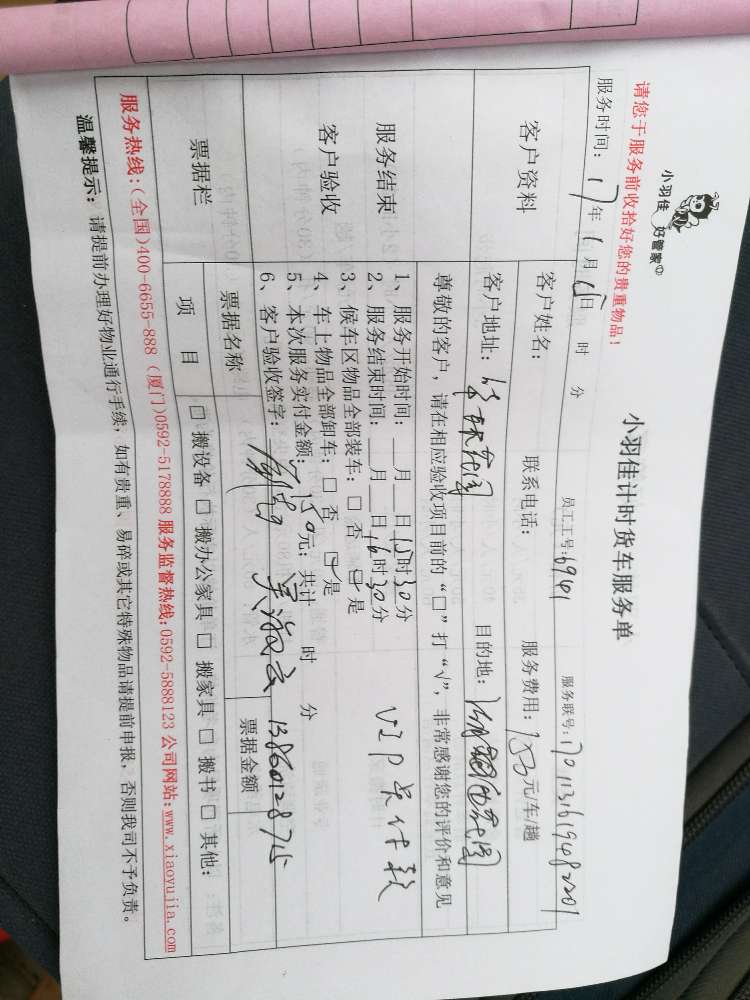 小羽佳 好管家
小羽佳计时货车服务单
请您于服务前收拾好您的贵重物品！
服务时间：17年1月15日 时 分 员工工号：6941 服务联号：
客户资料 客户姓名： 联系电话： 服务费用：150元/车/趟
客户地址： 目的地：
尊敬的客户，请在相应验收项目前的“□”打“√”，非常感谢您的评价和意见
服务结束
客户验收
1、服务开始时间：__月__日15时30分
2、服务结束时间：__月__日16时30分
3、候车区物品全部装车：□ 否 ☑ 是
4、车上物品全部卸车：□ 否 ☑ 是
5、本次服务实付金额：150元；共计 时 分
6、客户验收签字： 13860128715
VIP卡付款
票据栏 票据名称 票据金额
项 目 □ 搬设备 □ 搬办公家具 □ 搬家具 □ 搬书 □ 其他：
服务热线：(全国)400-6655-888 (厦门)0592-5178888 服务监督热线：0592-5888123 公司网站：www.xiaoyujia.com
温馨提示：请提前办理好物业通行手续，如有贵重、易碎或其它特殊物品请提前申报，否则我司不予负责。